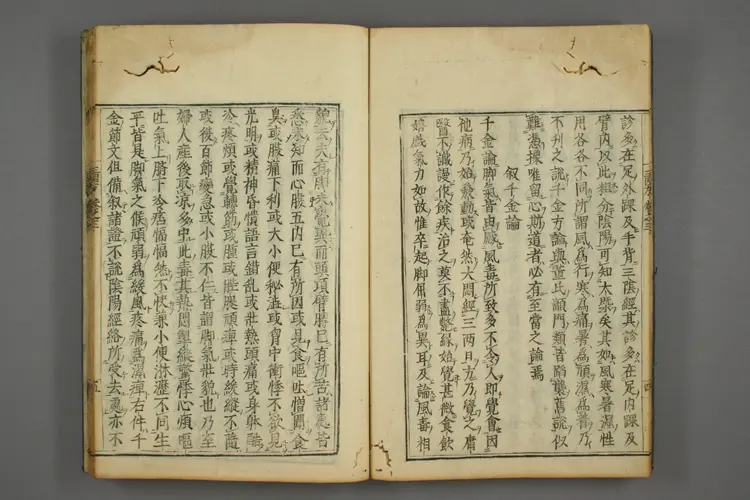 診多在足外踝及手背三陰經其診多在足内踝及
臂内以此推分陰陽可知大槩矣其如風寒暑濕性
用各各不同所謂風爲行寒爲痛暑爲頑濕爲著乃
不刊之說千金方論與董氏門類皆蹈襲舊說似
難憑據唯留心斯道者必有至當之論焉
叙千金論
千金論脚氣皆由感風毒所致多不令人即覺會因
他病乃始發動或奄然大悶經三兩日方乃覺之庸
醫不識謾作餘疾治之莫不盡斃緣始覺甚微食飲
嬉戲氣力如故惟卒起脚屈弱爲異耳及論風毒相
貌云夫有脚未覺異而頭項臂膊已有所苦諸處皆
悉未知而心腹五内已有所因或見食嘔吐憎聞食
臭或腹痛下利或大小便秘澁或胷中衝悸不欲見
光明或精神昏憒語言錯亂或壯熱頭痛或身體酷
冷疼煩或覺轉筋或腫或脛腿頑痺或時緩縱不隨
或復百節攣急或小腹不仁皆謂脚氣狀貌也乃至
婦人産後取凉多中此毒其熱悶掣縱驚悸心煩嘔
吐氣上臍下冷痞愊愊然不快兼小便淋瀝不同生
平皆是脚氣之候頑弱爲緩風疼痛爲濕痺右件千
金節文但備叙諸證不說陰陽經絡所受去處亦不